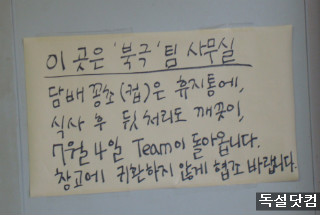 이 곳은 '북극' 팀 사무실
담배 꽁초(컵)은 휴지통에,
식사 후 뒷처리도 깨끗이,
7월 4일 Team이 돌아옵니다.
창고에 귀환하지 않게 협조 바랍니다.
독설닷컴